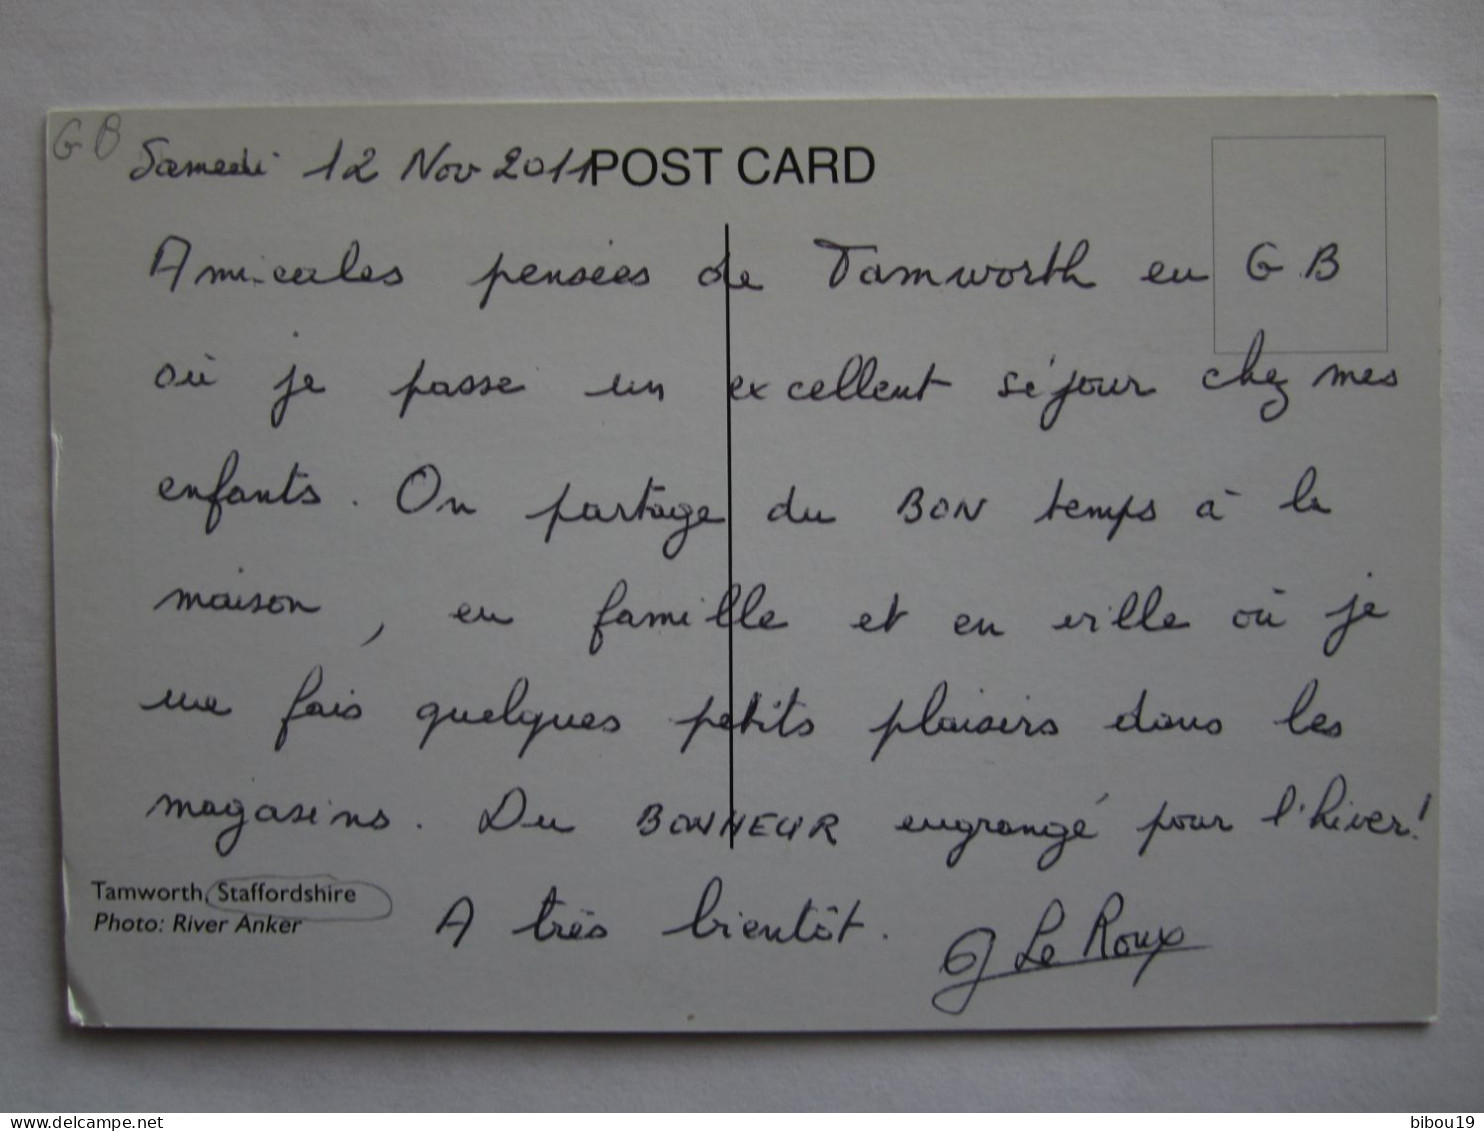 GB
Samedi 12 Nov 2011 POST CARD
Amicales pensées de Tamworth en GB
où je passe un excellent séjour chez mes
enfants. On partage du BON temps à la
maison, en famille et en ville où je
me fais quelques petits plaisirs dans les
magasins. Du BONHEUR engrangé pour l'hiver!
Tamworth, Staffordshire
Photo: River Anker
A très bientôt.
G Le Roux
delcampe.net
bibou19